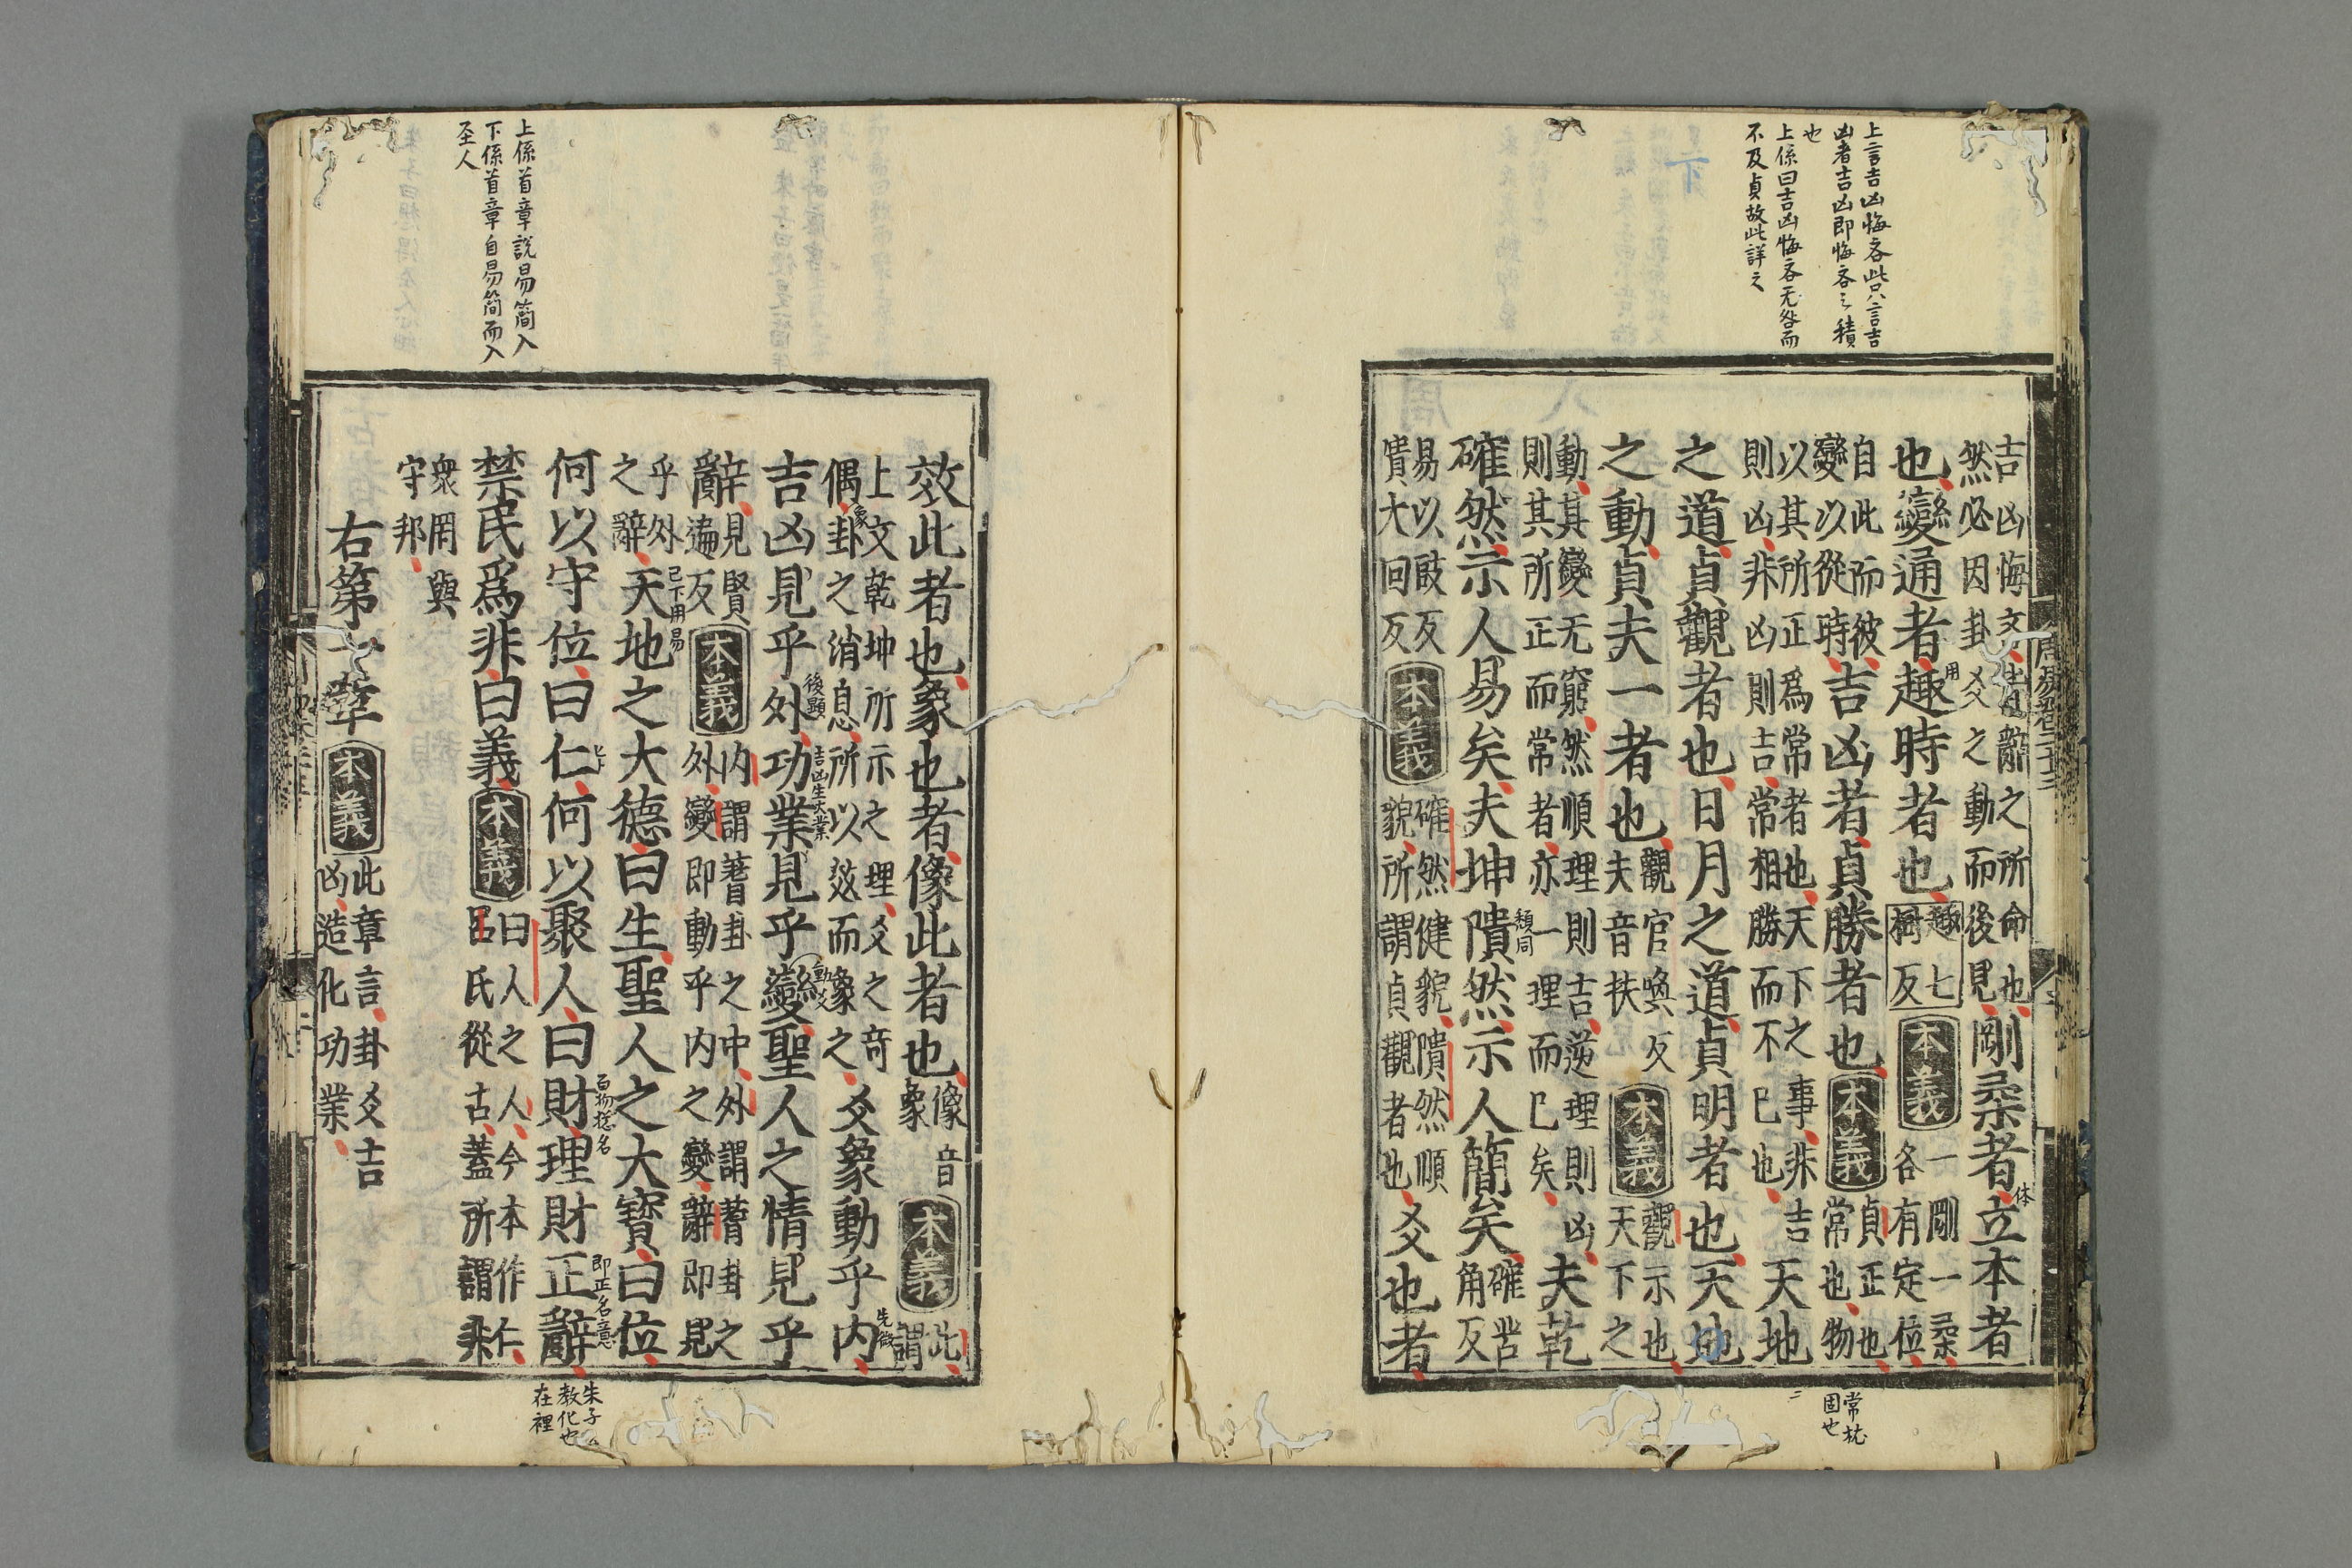 上言吉凶悔吝此只言吉
凶者吉凶即悔吝之積
也
上係曰吉凶悔吝无咎而
不及貞故此詳之
吉凶悔吝皆辭之所命也
然必因卦爻之動而後見剛柔者立本者
也變通者趣時者也趣七樹反本義一剛一柔各有定位
自此而彼
變以從時吉凶者貞勝者也本義貞正也常也物
以其所正爲常者也天下之事非吉
則凶非凶則吉常相勝而不已也天地
之道貞觀者也日月之道貞明者也天地
之動貞夫一者也觀官喚反夫音扶本義觀示也天下之
動其變无窮然順理則吉逆理則凶
則其所正而常者亦一理而已矣夫乾
確然示人易矣夫坤隤然示人簡矣確苦角反
易以豉反
隤大回反本義確然健貌隤然順
貌所謂貞觀者也爻也者
用
体
頹同
常枕
固也
上係首章說易簡入
下係首章自易簡而入
圣人
效此者也象也者像此者也像音象本義此謂
上文乾坤所示之理爻之奇
偶卦之消息所以效而象之爻象動乎内
吉凶見乎外功業見乎變聖人之情見乎
辭見賢遍反本義内謂蓍卦之中外謂蓍卦之
外變即動乎内之變辭即見
乎外
之辭天地之大德曰生聖人之大寶曰位
何以守位曰仁何以聚人曰財理財正辭
禁民爲非曰義本義曰人之人今本作仁
呂氏從古蓋所謂非
衆罔與
守邦
右第一章本義此章言卦爻吉
凶造化功業
象
先微
後顯
吉凶生大業
動爻
已下用易
百物揔名
即正名意
朱子
教化也
在裡